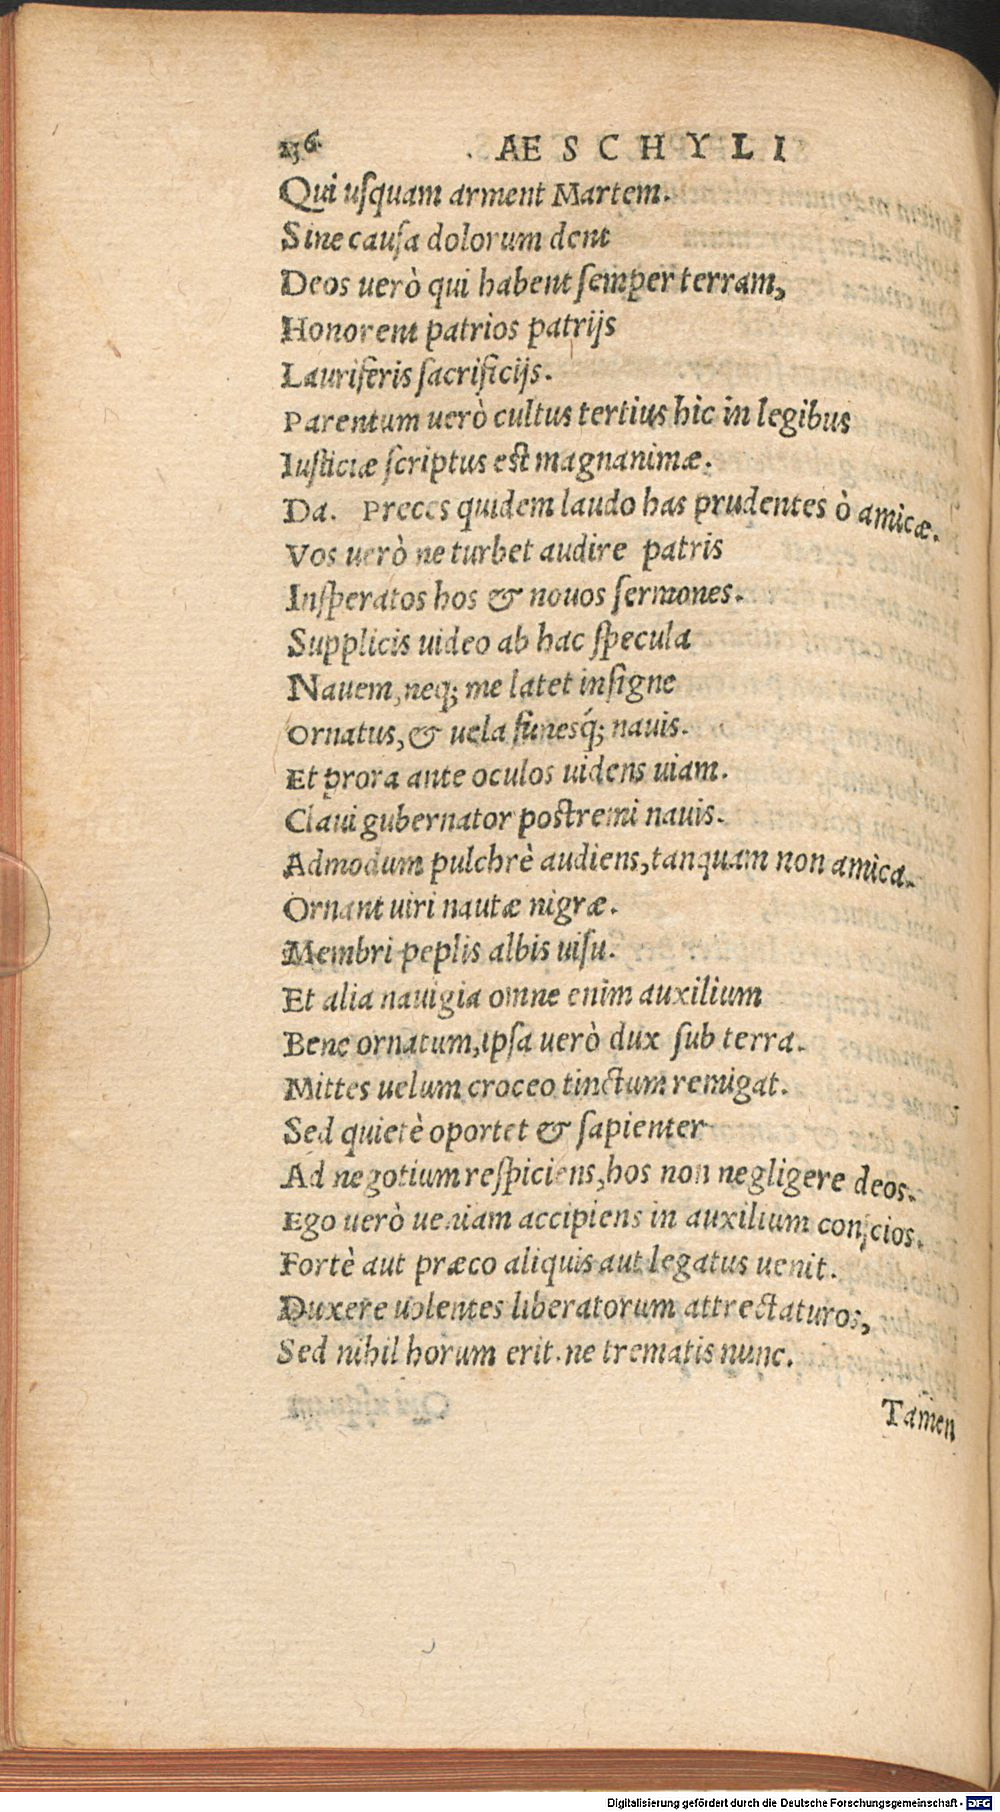 AESCHYLI
Qui uſquam arment Martem.
Sine cauſa dolorum dent
Deos uerò qui habent ſemper terram,
Honorent patrios patrijs
Lauriferis ſacrificijs.
Parentum uerò cultus tertius hic in legibus
Iuſticiæ ſcriptus eſt magnanimæ.
Da. Preces quidem laudo has prudentes ò amicæ.
Vos uerò ne turbet audire patris
Inſperatos hos & nouos ſermones.
Supplicis uideo ab hac ſpecula
Nauem, neq; me latet inſigne
Ornatus, & uela funesq́; nauis.
Et prora ante oculos uidens uiam.
Claui gubernator poſtremi nauis.
Admodum pulchrè audiens, tanquam non amica.
Ornant uiri nautæ nigræ.
Membri peplis albis uiſu.
Et alia nauigia omne enim auxilium
Bene ornatum, ipſa uerò dux ſub terra.
Mittes uelum croceo tinctum remigat.
Sed quietè oportet & ſapienter
Ad negotium reſpiciens, hos non negligere deos.
Ego uerò ueniam accipiens in auxilium conſcios.
Fortè aut præco aliquis aut legatus uenit.
Duxere uolentes liberatorum attrectaturos,
Sed nihil horum erit. ne trematis nunc.
Tamen
Digitalisierung gefördert durch die Deutsche Forschungsgemeinschaft - DFG